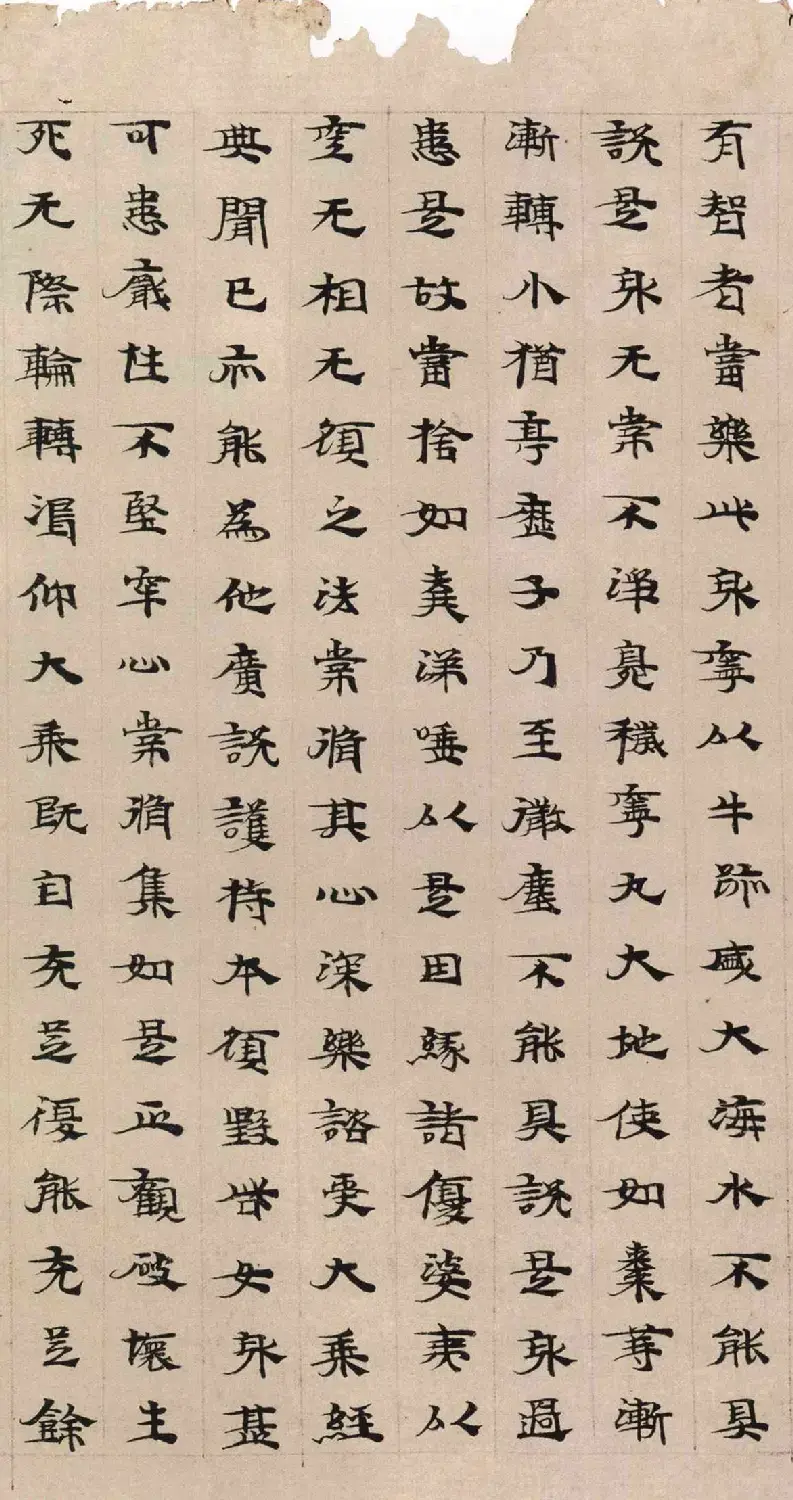 有智者當樂此身寧以牛跡盛大海水不能具
說是身无常不淨臭穢寧丸大地使如棗等漸
漸轉小猶亭歷子乃至微塵不能具說是身過
患是故當捨如棄涕唾以是因緣諸優婆夷以
空无相无願之法常脩其心深樂諮受大乘經
典聞已亦能為他廣說護持本願毀呰女身甚
可患厭性不堅牢心常脩集如是正觀破壞生
死无際輪轉渴仰大乘既自充足復能充足餘